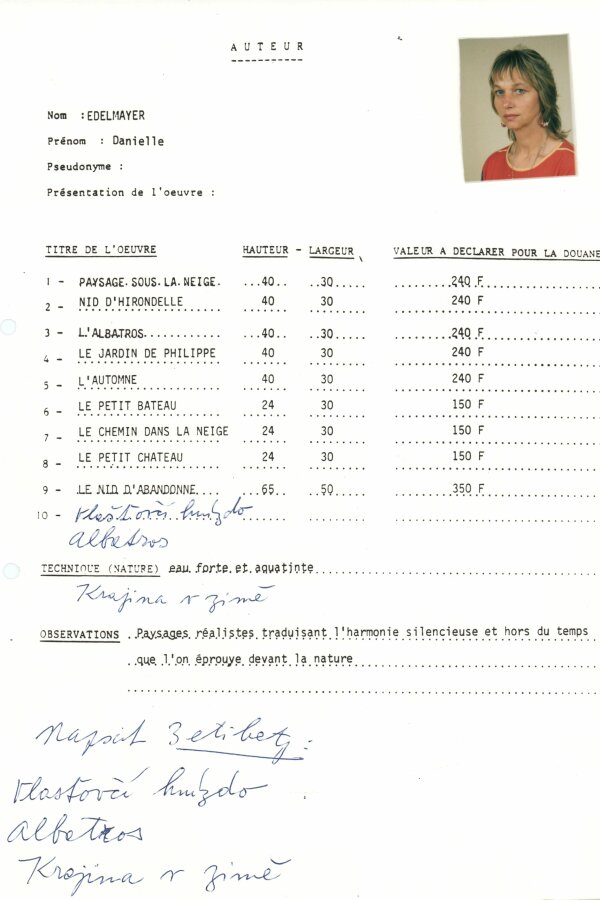 AUTEUR
Nom : EDELMAYER
Prénom : Danielle
Pseudonyme :
Présentation de l'oeuvre :
TITRE DE L'OEUVRE HAUTEUR - LARGEUR VALEUR A DECLARER POUR LA DOUANE
1 - PAYSAGE SOUS LA NEIGE 40 30 240 F
2 - NID D'HIRONDELLE 40 30 240 F
3 - L'ALBATROS 40 30 240 F
4 - LE JARDIN DE PHILIPPE 40 30 240 F
5 - L'AUTOMNE 40 30 240 F
6 - LE PETIT BATEAU 24 30 150 F
7 - LE CHEMIN DANS LA NEIGE 24 30 150 F
8 - LE PETIT CHATEAU 24 30 150 F
9 - LE NID D'ABANDONNE 65 50 350 F
10 - Vlaštovčí hnízdo
Albatros
TECHNIQUE (NATURE) eau forte et aquatinte
Krajina v zimě
OBSERVATIONS Paysages réalistes traduisant l'harmonie silencieuse et hors du temps
que l'on éprouve devant la nature
Napsat 3 etikety:
Vlaštovčí hnízdo
Albatros
Krajina v zimě